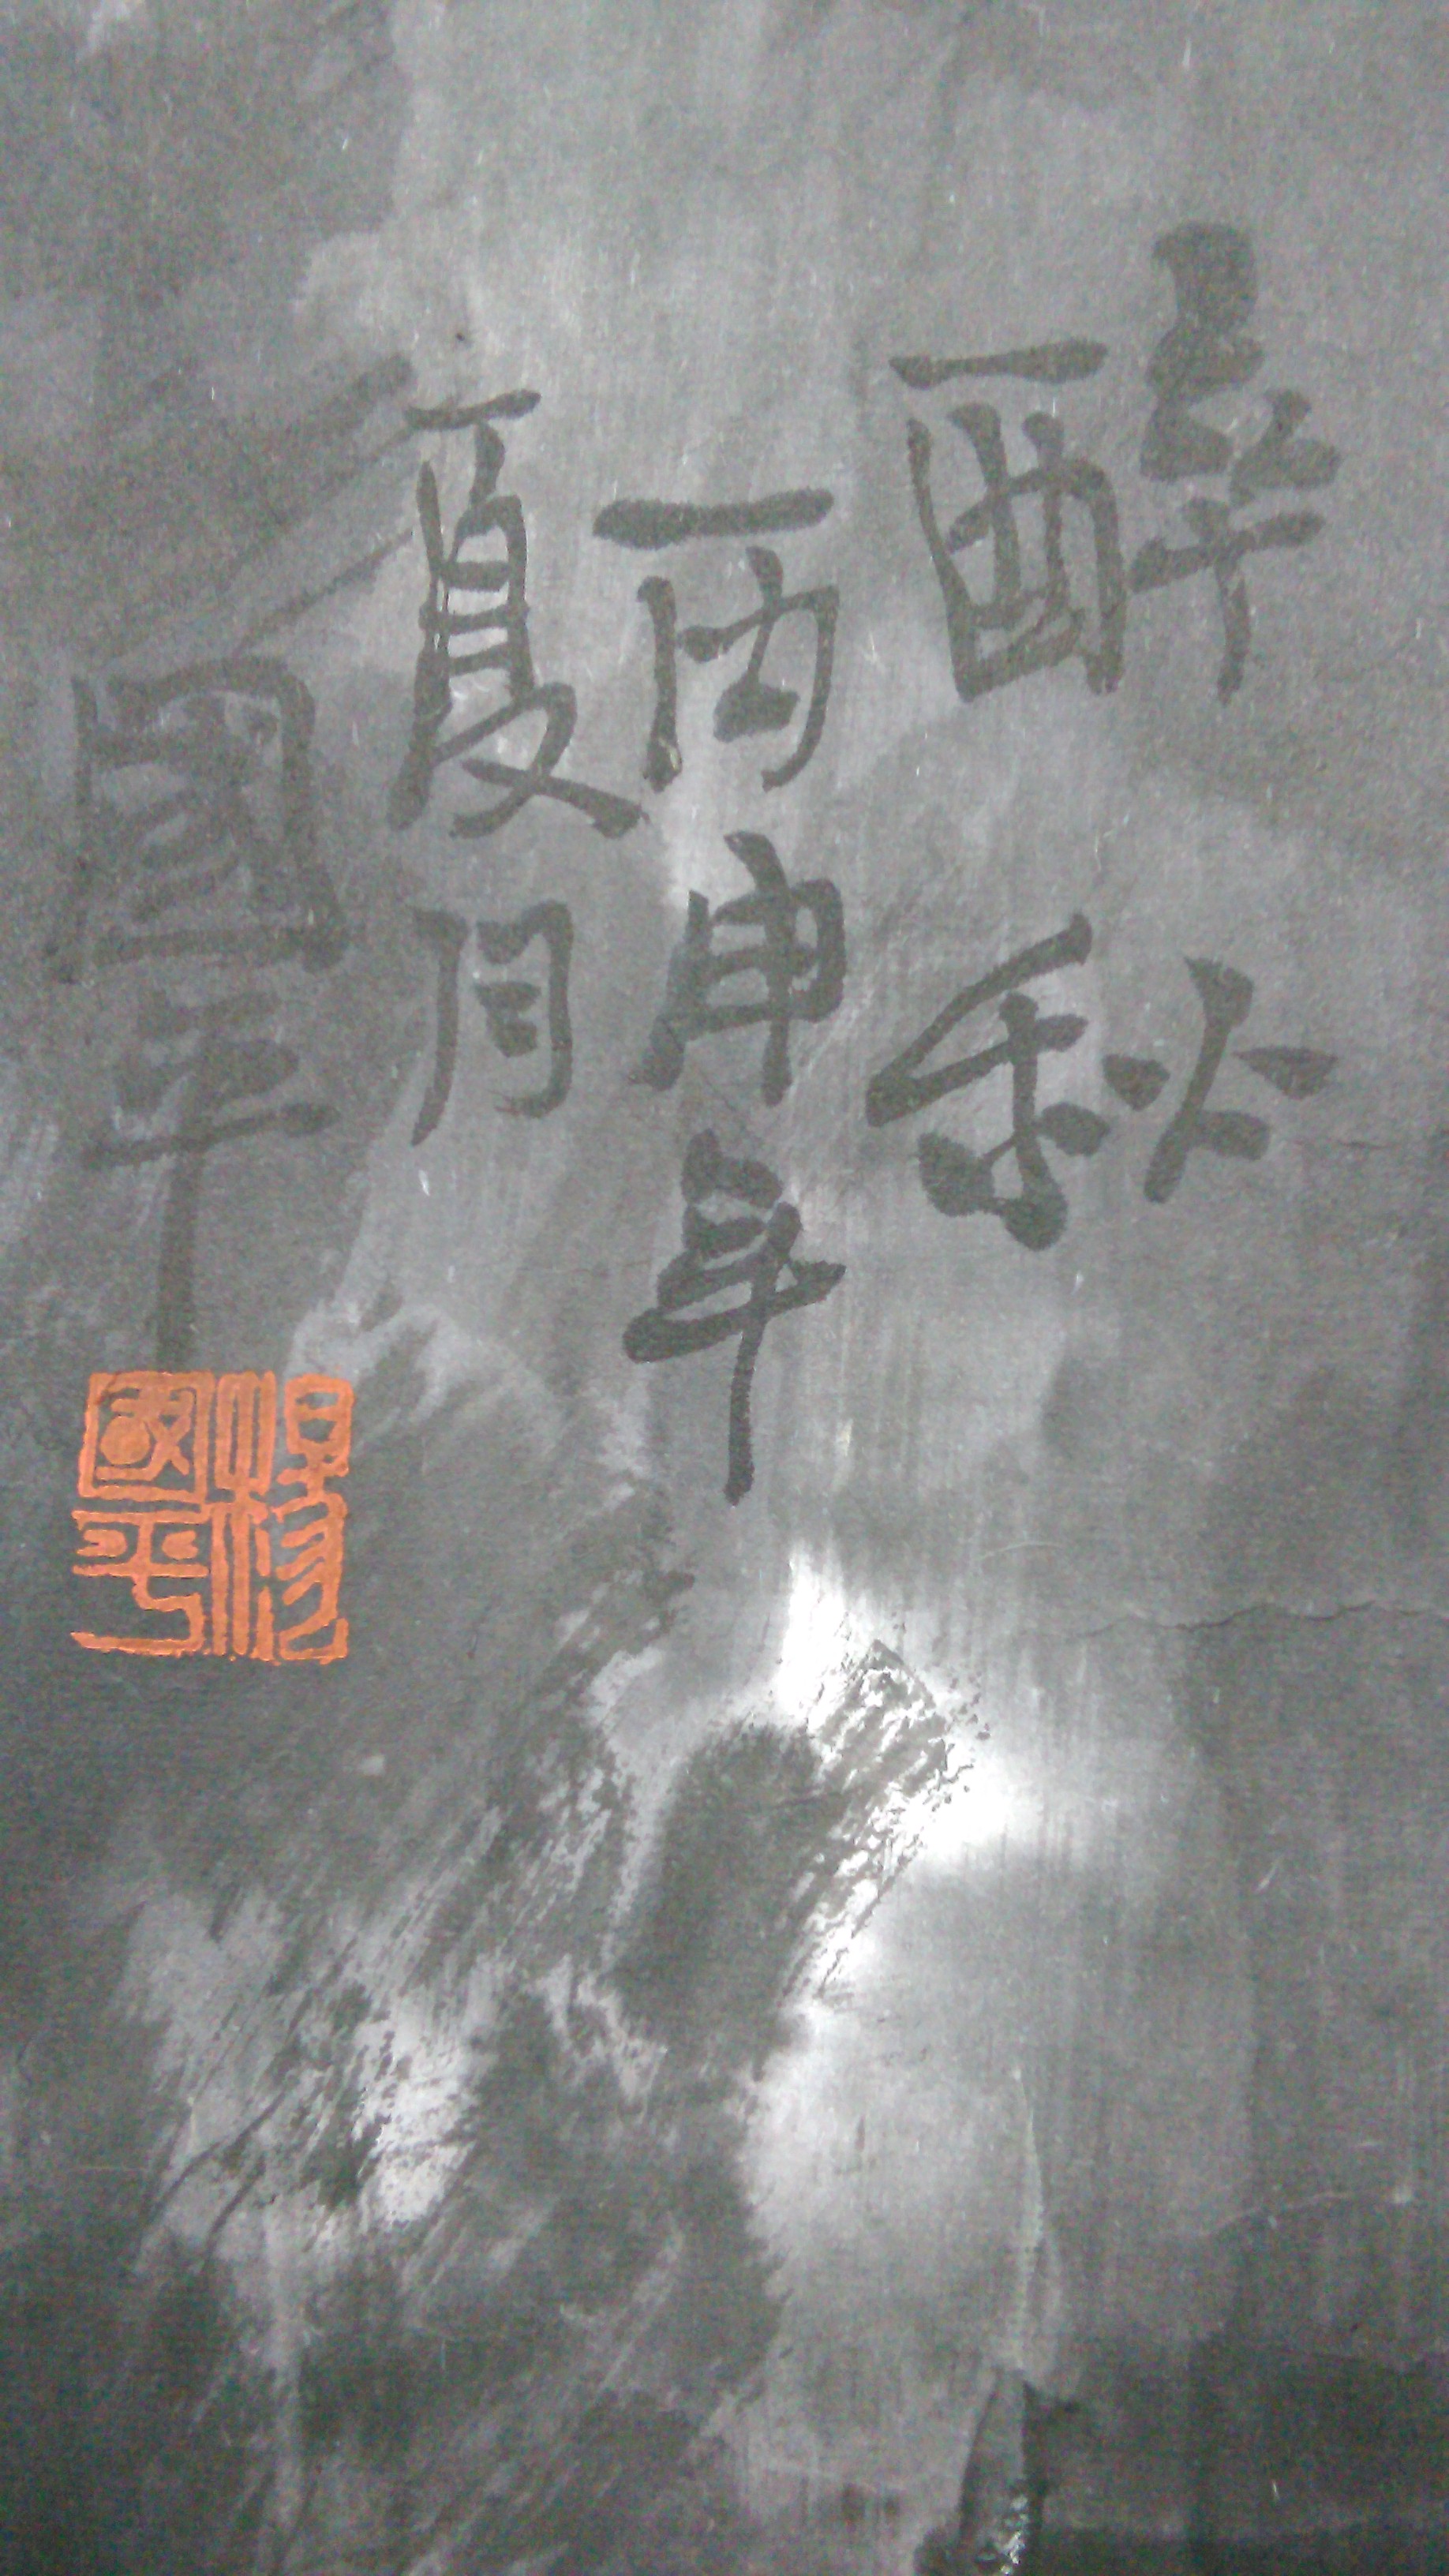 醉秋
丙申年
夏月
國平
楊國平